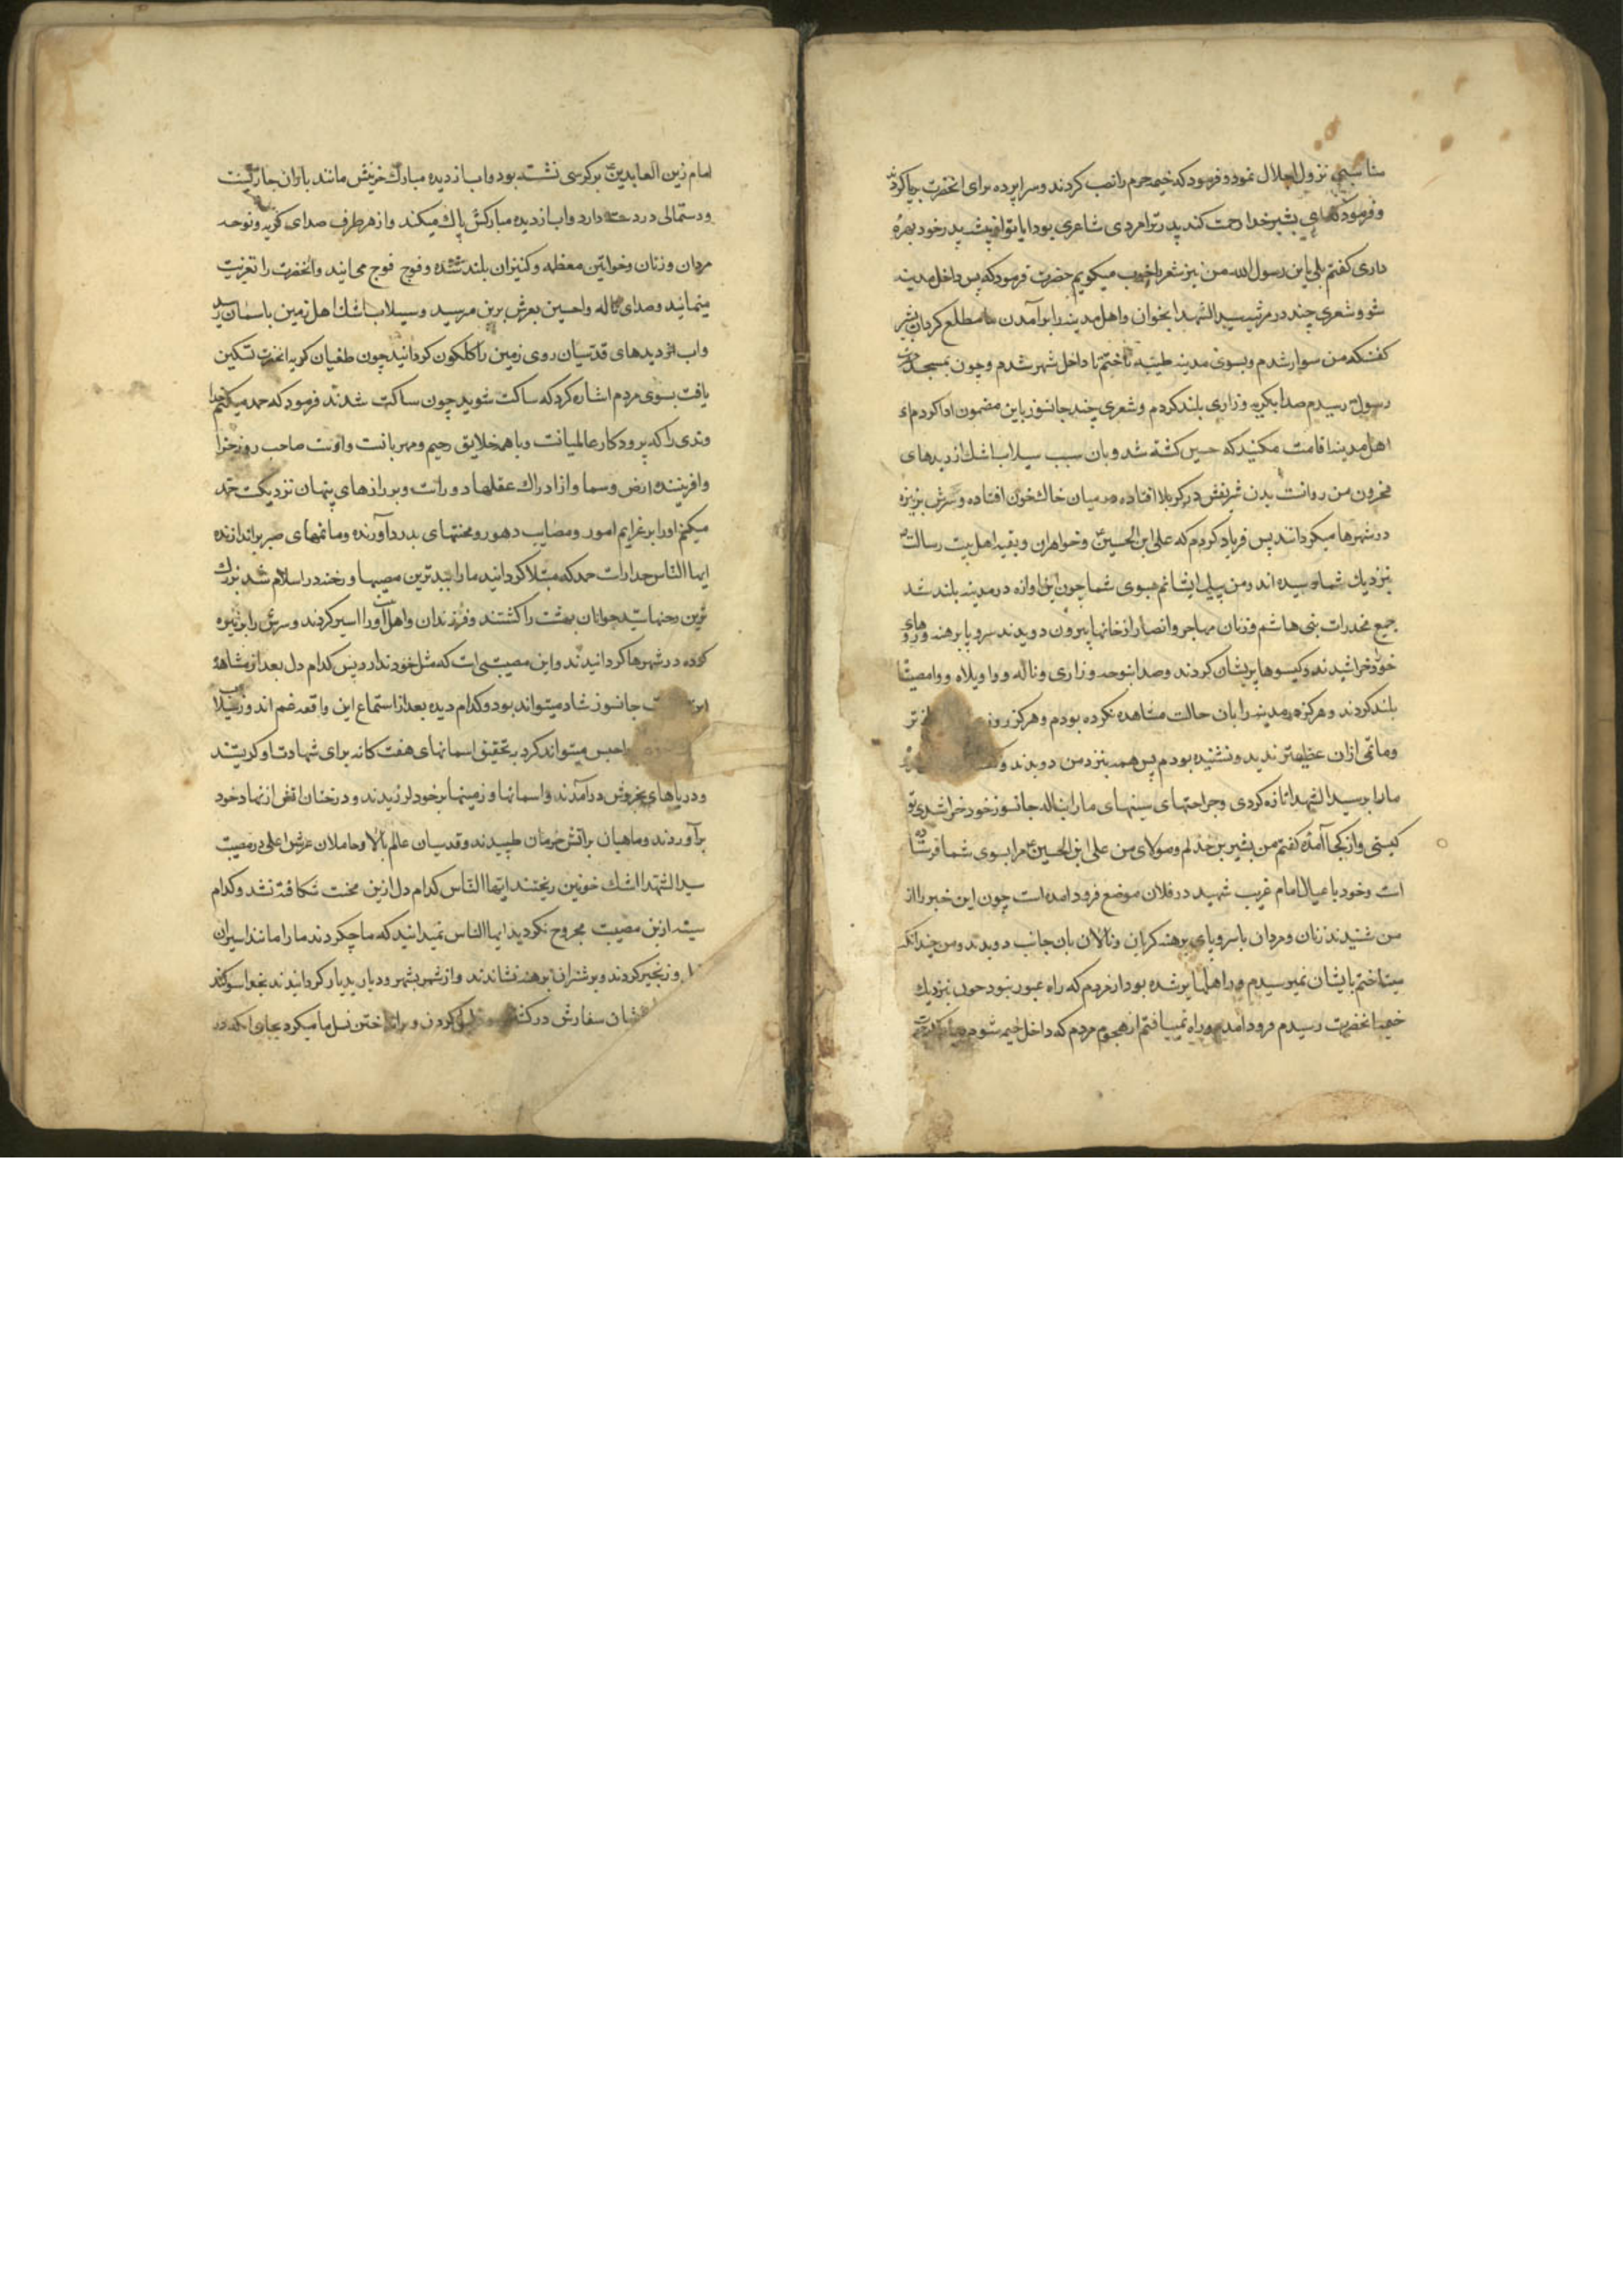 مناسبی نزول اجلال نمود و فرمود که خیمه حرم را نصب کردند و سراپرده برای انحضرت برپا کردند
و فرمود که ای بشیر خدا رحمت کند پدر ترا مردی شاعری بود ایا تو از پیشه پدر خود بهرهٔ
داری کفتم بلی یابن رسول الله من نیز شعر را خوب میکویم حضرت فرمود که پس داخل مدینه
شو و شعری چند در مرثیه سید الشهدا بخوان و اهل مدینه را بر آمدن ما مطلع کردان بشیر
کفت که من سوار شدم و بسوی مدینه طیبه تاختم تا داخل شهر شدم و چون بمسجد حضرت
رسول رسیدم صدا بکریه و زاری بلند کردم و شعری چند جانسوز باین مضمون ادا کردم ای
اهل مدینه اقامت مکنید که حسین کشته شد و بان سبب سیلاب اشک از دیدهای
محزون من روانست بدن شریفش در کربلا افتاده در میان خاک خون افتاده و سرش بر نیزه
در شهرها میکردانند پس فریاد کردم که علی ابن الحسین و خواهران و بقیه اهل بیت رسالت
بنزدیک شما رسیده اند و من پیک ایشانم بسوی شما چون این اوازه در مدینه بلند شد
جمیع مخدرات بنی هاشم و زنان مهاجر و انصار از خانها بیرون دویدند سر و پا برهنه و روهای
خود خراشیدند و کیسوها پریشان کردند و صدا بنوحه و زاری و ناله و واویلاه و وامصیبتا
بلند کردند و هرکز مدینه را بان حالت مشاهده نکرده بودم و هرکز روزی تر
و ماتمی ازان عظیمتر ندیده و نشنیده بودم پس همه بنزد من دویدند و
مارا بر سید الشهدا تازه کردی و جراحتهای سینهای مارا بناله جانسوز خود خراشیدی تو
کیستی و از کجا آمدهٔ کفتم من بشیر بن خذلم و مولای من علی ابن الحسین مرا بسوی شما فرستاده
است و خود با عیال امام غریب شهید در فلان موضع فرود امده است چون این خبر را از
من شنیدند زنان و مردان با سر و پای برهنه کریان و نالان بان جانب دویدند و من چندانکه
میتاختم بایشان نمیرسیدم و راهها پر شده بود از مردم که راه عبور نبود چون بنزدیک
خیمه انحضرت رسیدم فرود امدم و راه نمییافتم از هجوم مردم که داخل خیمه شوم
امام زین العابدین بر کرسی نشسته بود و اب از دیده مبارک خویش مانند باران جاریست
و دستمالی در دست دارد و اب از دیده مبارکش پاک میکند و از هر طرف صدای کریه و نوحه
مردان و زنان و خواتین معظمه و کنیزان بلند شده و فوج فوج می ایند و انحضرت را تعزیت
مینمایند و صدای ناله واحسین بعرش برین میرسید و سیلاب اشک اهل زمین باسمان رسید
و اب از دیدهای قدسیان روی زمین را کلکون کردانید چون طغیان کریه انحضرت تسکین
یافت بسوی مردم اشاره کرد که ساکت شوید چون ساکت شدند فرمود که حمد میکنم خدا
وندی را که پرودکار عالمیانست و با همه خلایق رحیم و مهربانست و اوست صاحب روز جزا
و افریننده ارض و سما و از ادراک عقلها دور است و بر رازهای پنهان نزدیکست حمد
میکنم اورا بر عزایم امور و مصایب دهور و محنتهای بدرد آورنده و ماتمهای صبر براندازنده
ایها الناس خدا راست حمد که مبتلا کردانید مارا ببدترین مصیبها و رخنه در اسلام شد بزرک
ترین رخنها سید جوانان بهشت را کشتند و فرزندان و اهل بیت اورا اسیر کردند و سرش را بر نیزه
کرده در شهرها کردانیدند و این مصیبتی است که مثل خود ندارد پس کدام دل بعد از مشاهدهٔ
این جانسوز شاد میتواند بود و کدام دیده بعد از استماع این واقعه غم اندوز سیلاب
حبس میتواند کرد بتحقیق اسمانهای هفت کانه برای شهادت او کریستند
و دریاهای بخروش در آمدند و اسمانها و زمینها بر خود لرزیدند و درختان اتش از نهاد خود
برآوردند و ماهیان بر اتش حرمان طپیدند و قدسیان عالم بالا و حاملان عرش اعلی در مصیبت
سید الشهدا اشک خونین ریختند ایها الناس کدام دل ازین محنت شکافته نشد و کدام
سینه ازین مصیبت مجروح نکردید ایها الناس نمیدانید که ما چکردند مارا مانند اسیران
و زنجیر کردند و بر شتران برهنه نشاندند و از شهر بشهر و دیار بدیار کردانیدند بخدا سوکند
سفارش در کردن و بر انداختن نسل ما میکرد بجای